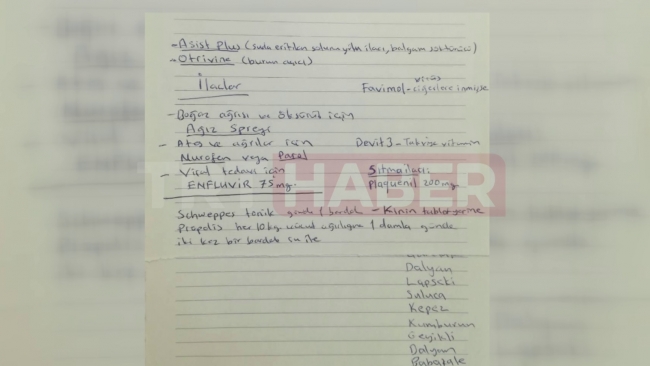 - Asist Plus (suda eritilen solunum yolu ilacı, balgam söktürücü)
- Otrivine (burun açıcı)
İlaclar
virüs
Favimol - ciğerlere inmişse
- Boğaz ağrısı ve öksürük için
Ağız Spreyi
- Ateş ve ağrılar için
Devit3 - Takviye vitamin
Nurofen veya Parol
- Viral tedavi için
Sıtma ilacı:
ENFLUVİR 75 mg.
Plaquenil 200 mg
TRT HABER
Schweppes tonik günde 1 bardak - Kinin tablet yerine
Propolis her 10 kg vücud ağırlığına 1 damla günde
iki kez bir bardak su ile
Dalyan
Lapseki
Suluca
Kepez
Kumburun
Geyikli
Dalyan
Babakale